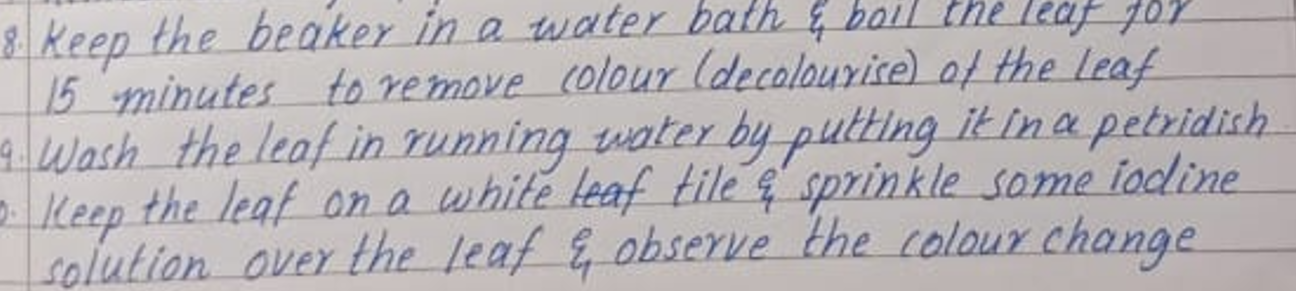 8. Keep the beaker in a water bath & boil the leaf for
15 minutes to remove colour (decolourise) of the leaf
9. Wash the leaf in running water by putting it in a petridish
0. Keep the leaf on a white leaf tile & sprinkle some iodine
solution over the leaf & observe the colour change